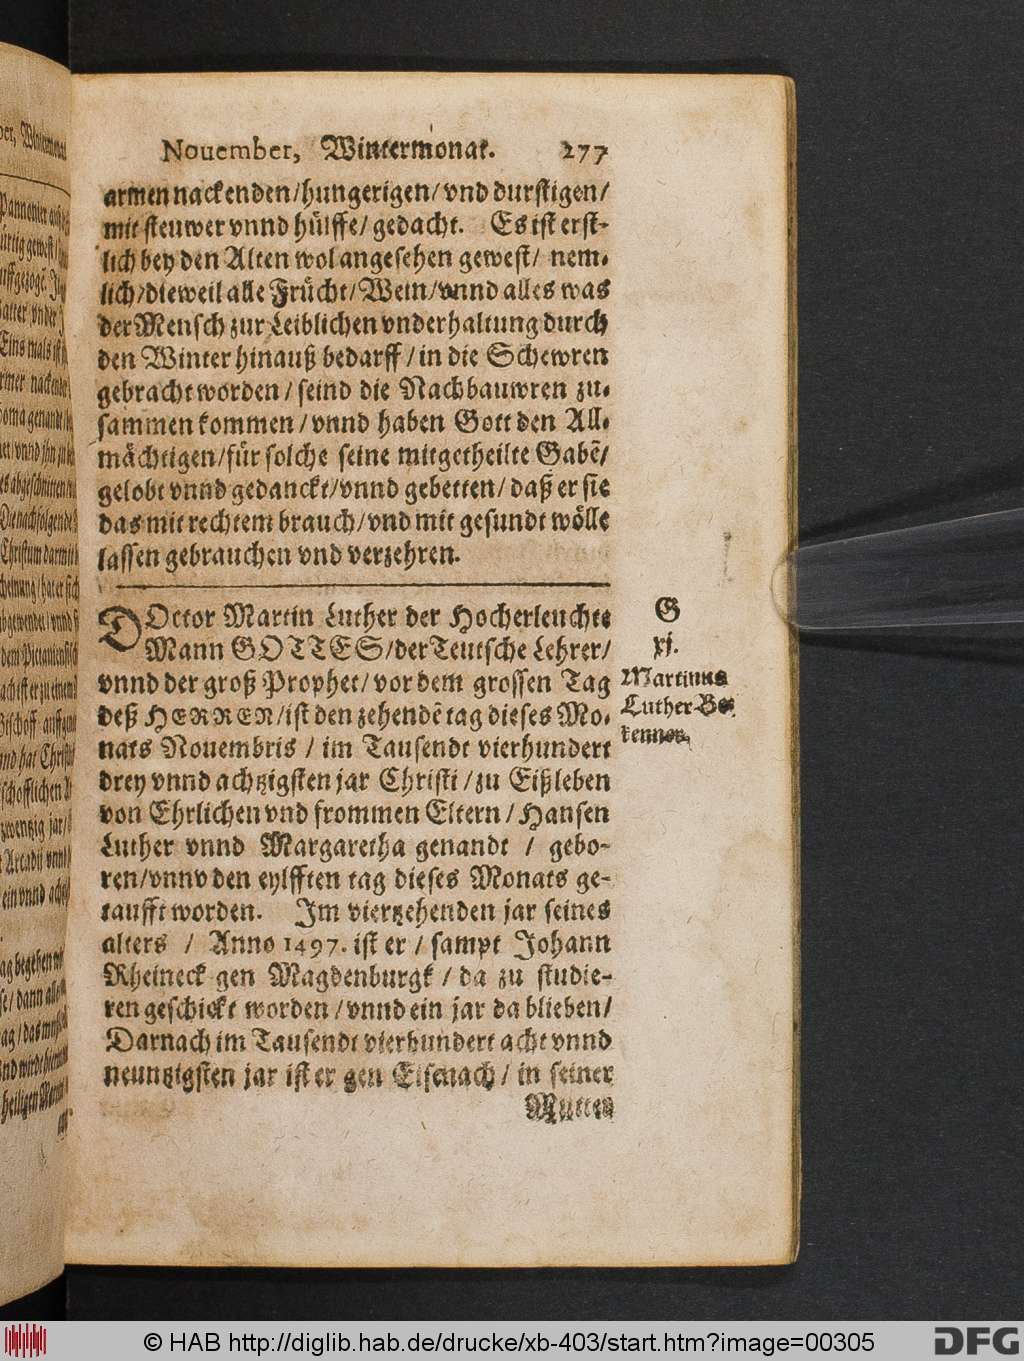 Nouember, Wintermonat. 277
armen nackenden/hungerigen/vnd durstigen/
mit steuwer vnnd hülffe/gedacht. Es ist erst-
lich bey den Alten wol angesehen gewest/ nem-
lich/dieweil alle Frücht/Wein/vnnd alles was
der Mensch zur Leiblichen vnderhaltung durch
den Winter hinauß bedarff/in die Schewren
gebracht worden/seind die Nachbauwren zu-
sammen kommen/vnnd haben Gott den All-
mächtigen/für solche seine mitgetheilte Gabẽ/
gelobt vnnd gedanckt/vnnd gebetten/daß er sie
das mit rechtem brauch/vnd mit gesundt wölle
lassen gebrauchen vnd verzehren.
DOctor Martin Luther der Hocherleuchte
Mann GOTTES/der Teutsche Lehrer/
vnnd der groß Prophet/vor dem grossen Tag
deß HERREN/ist den zehendẽ tag dieses Mo-
nats Nouembris / im Tausendt vierhundert
drey vnnd achtzigsten jar Christi/zu Eißleben
von Ehrlichen vnd frommen Eltern/Hansen
Luther vnnd Margaretha genandt / gebo-
ren/vnnd den eylfften tag dieses Monats ge-
taufft worden. Im viertzehenden jar seines
alters / Anno 1497. ist er/sampt Johann
Rheineck gen Magdenburgk/da zu studie-
ren geschickt worden/vnnd ein jar da blieben/
Darnach im Tausendt vierhundert acht vnnd
neuntzigsten jar ist er gen Eisenach/in seiner
Mutter
G
xj.
Martinus
Luther Be-
kenner.
© HAB http://diglib.hab.de/drucke/xb-403/start.htm?image=00305
DFG